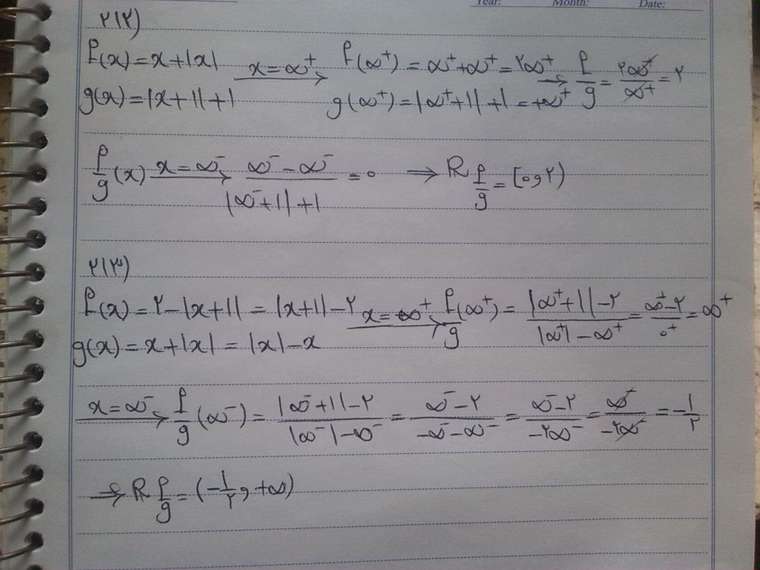 Year: Month: Date:
۲۱۲)
f(x) = x+|x| x=∞⁺→ f(∞⁺) = ∞⁺+∞⁺ = ۲∞⁺ → f/g = ۲∞⁺/∞⁺ = ۲
g(x) = |x+1|+1 g(∞⁺) = |∞⁺+1|+1 = +∞⁺
f/g (x) x=∞⁻→ (∞⁻-∞⁻)/(|∞⁻+1|+1) = ۰ ⇒ R f/g = [۰و۲)
۲۱۳)
f(x) = ۲-|x+1| = |x+1|-۲ x=∞⁺→ f/g (∞⁺) = (|∞⁺+1|-۲)/(|∞⁺|-∞⁺) = (∞⁺-۲)/۰⁺ = ∞⁺
g(x) = x+|x| = |x|-x
x=∞⁻→ f/g (∞⁻) = (|∞⁻+1|-۲)/(|∞⁻|-∞⁻) = (∞⁻-۲)/(-∞⁻-∞⁻) = (∞⁻-۲)/(-۲∞⁻) = ∞⁻/(-۲∞⁻) = -1/۲
⇒ R f/g = (-1/۲و+∞)